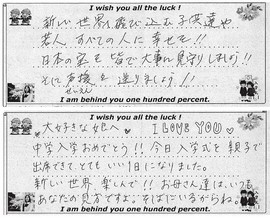 I wish you all the luck !
新しい世界に飛び込む子供達や
若人、すべての人に幸せを!!
日本の宝を皆で大事に見守りましょう!!
そして声援を送りましょう!!
せいえん
I am behind you one hundred percent.
I wish you all the luck !
大好きな娘へ I LOVE YOU
中学入学おめでとう!! 今日入学式を親子で
出席できて、とてもいい1日になりました。
新しい世界楽しんで!! お母さん達は、いつも
あなたの見方ですよ。そばにいるからね。
I am behind you one hundred percent.